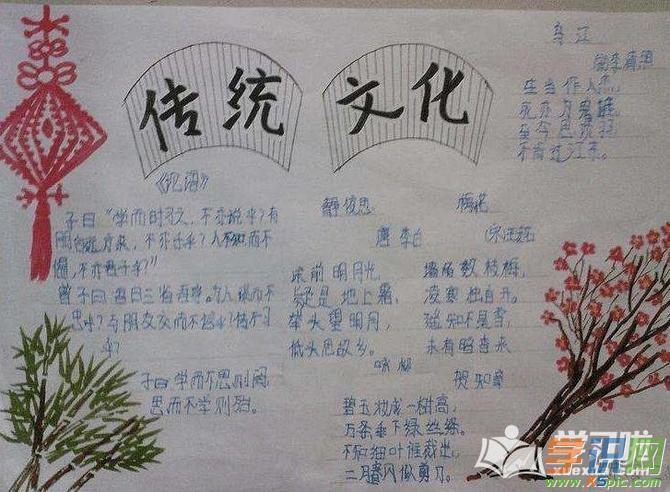 传统 文化
乌江
宋李清照
生当作人杰,
死亦为鬼雄。
至今思项羽,
不肯过江东。
《论语》
子曰:“学而时习之,不亦说乎?有
朋自远方来,不亦乐乎?人不知而不
愠,不亦君子乎?”
曾子曰:吾日三省吾身。为人谋而不
忠乎?与朋友交而不信乎?传不习
乎?
子曰学而不思则罔,
思而不学则殆。
静夜思
唐 李白
床前明月光,
疑是地上霜,
举头望明月,
低头思故乡。
梅花
宋
墙角数枝梅,
凌寒独自开。
遥知不是雪,
未有暗香来
咏柳
贺知章
碧玉妆成一树高,
万条垂下绿丝绦。
不知细叶谁裁出,
二月春风似剪刀。
学识网
www.xspic.com